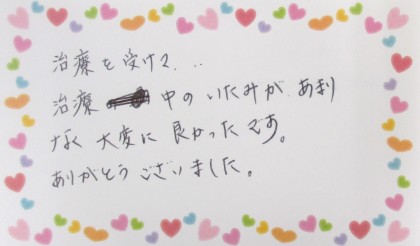 治療を受けて...
治療中のいたみが、あまり
なく大変に良かったです。
ありがとうございました。